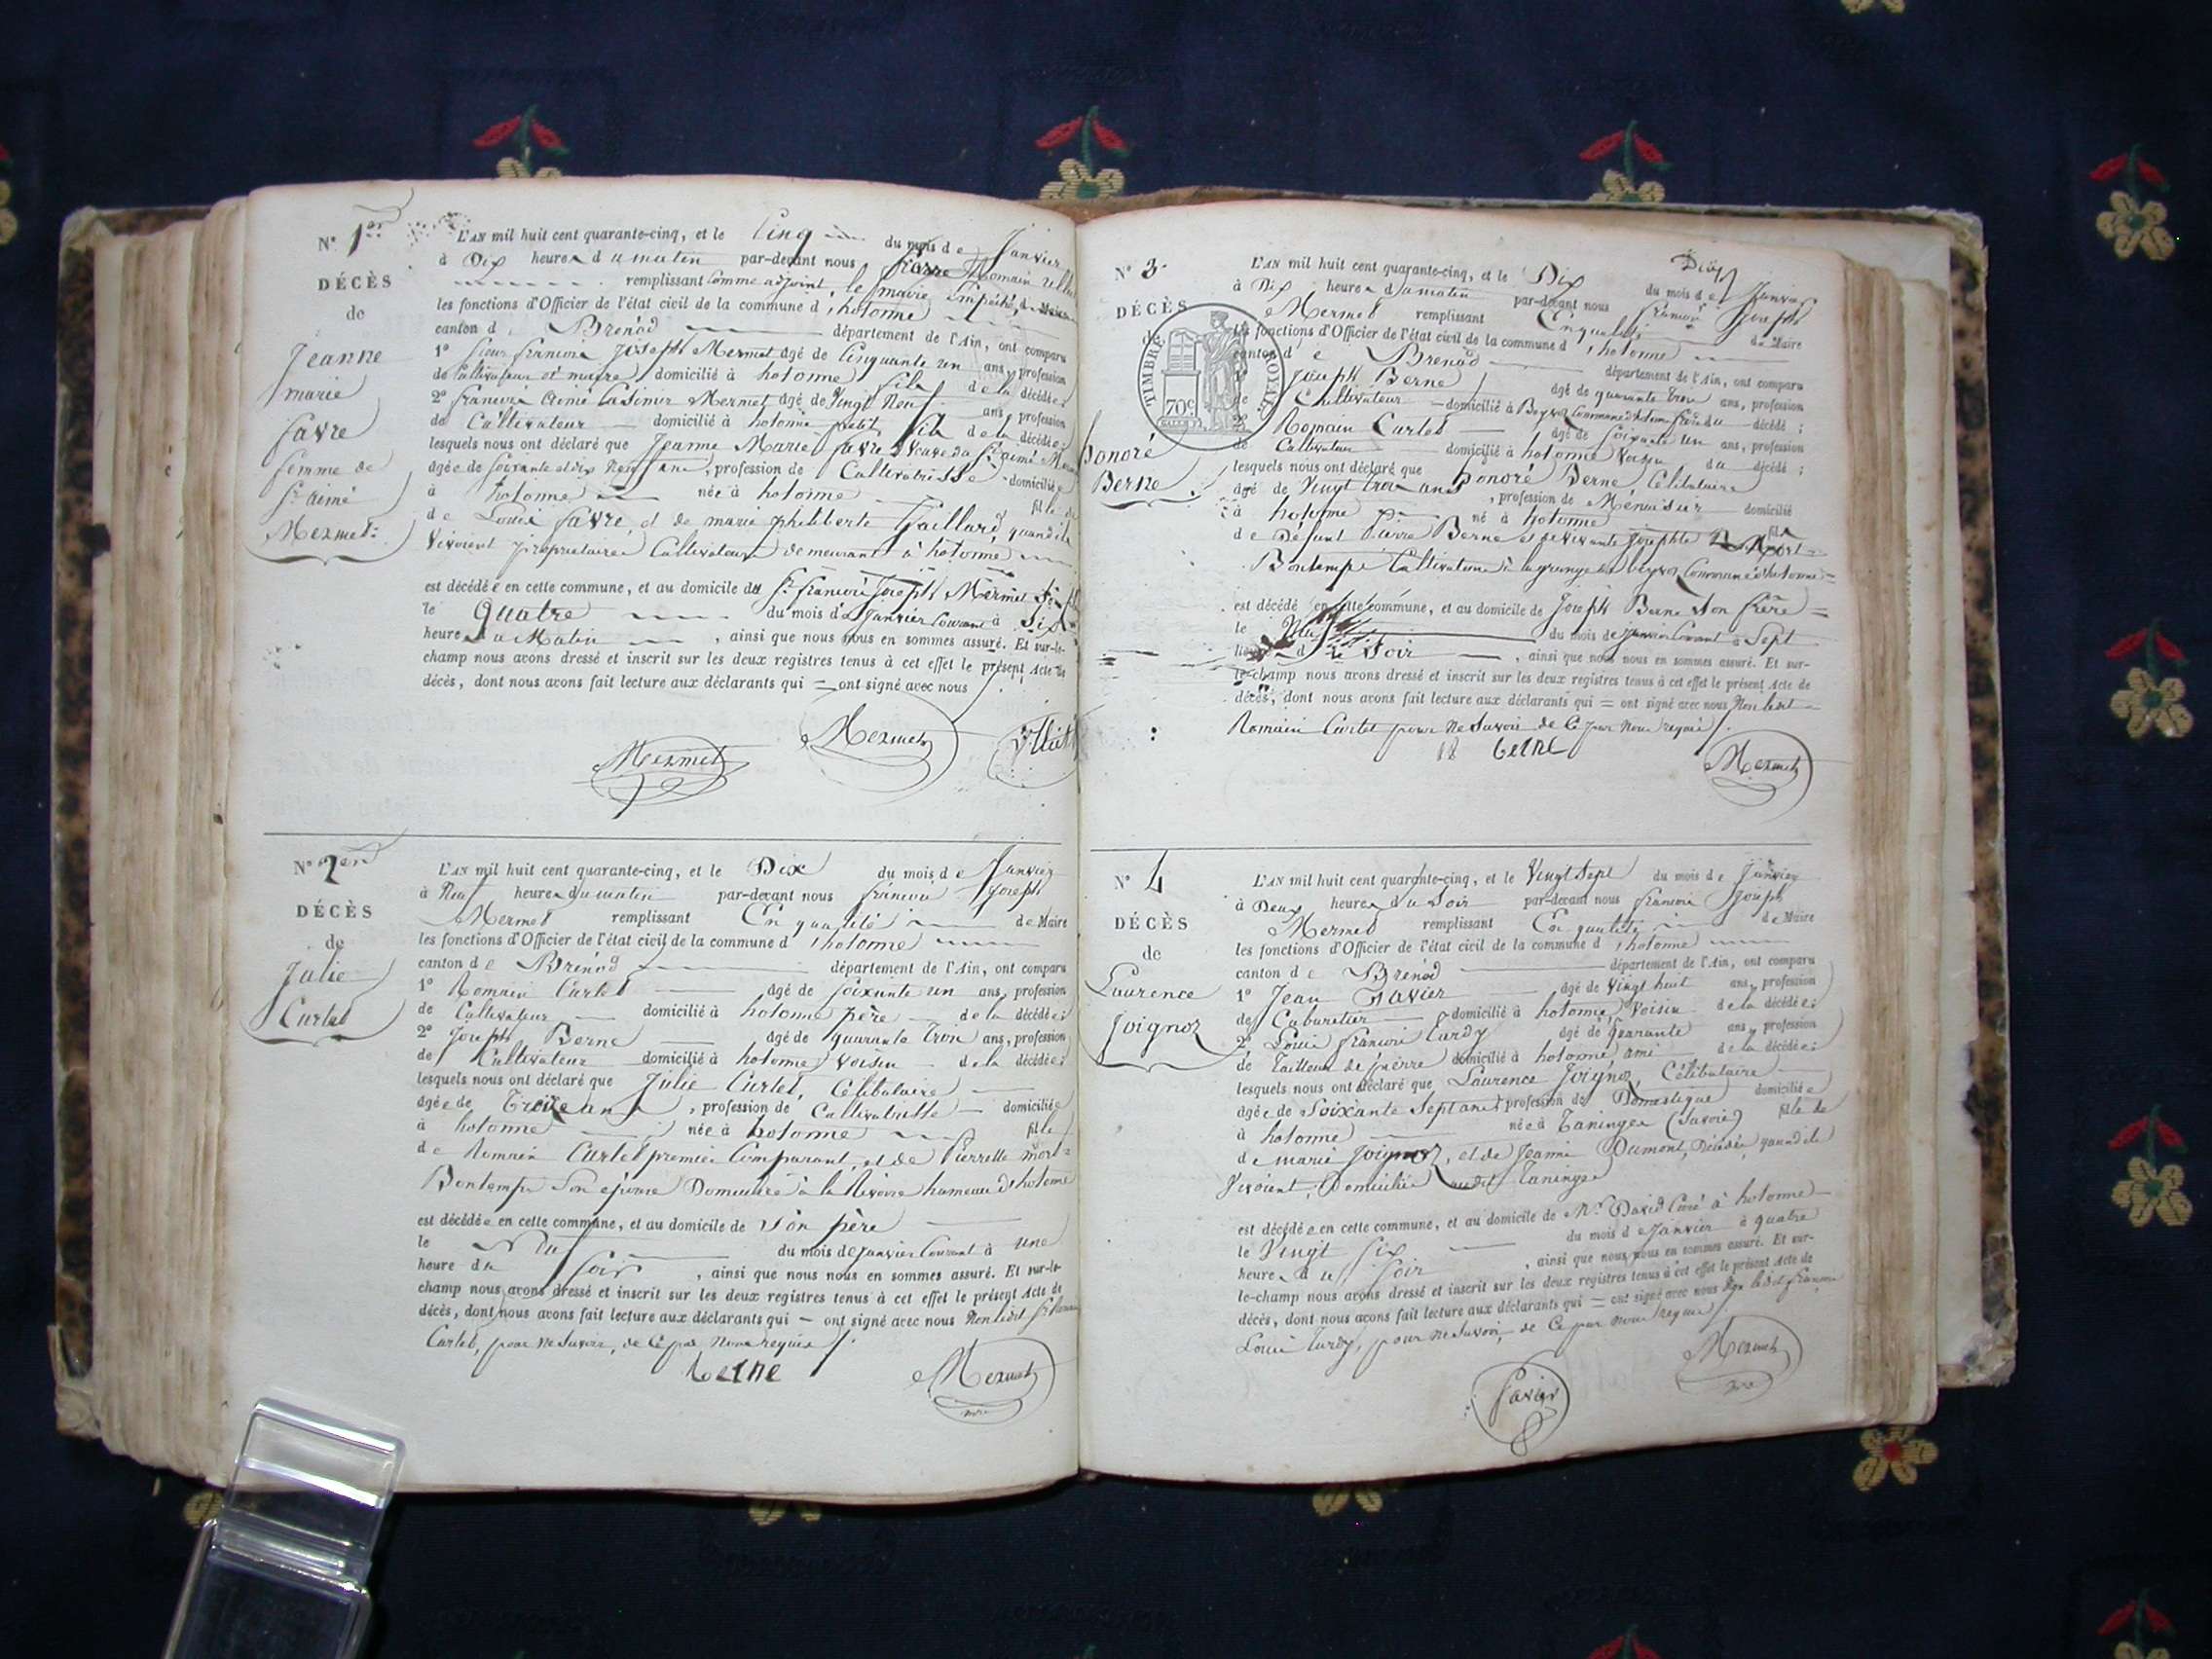 N° 1er
DÉCÈS
de
Jeanne
marie
favre
femme de
Sr aimé
Mermet
L'AN mil huit cent quarante-cinq, et le Cinq du mois de Janvier
à Dix heures du matin par-devant nous Romain
remplissant Comme adjoint, le maire Empêché,
les fonctions d'Officier de l'état civil de la commune d'hotonne
canton de Brénod département de l'Ain, ont comparu
1° Sieur francois Joseph Mermet âgé de Cinquante un ans, profession
de Cultivateur et maire domicilié à hotonne fils de la décédée;
2° francois aimé Casimir Mermet âgé de Vingt Neuf ans, profession
de Cultivateur domicilié à hotonne petit fils de la décédée;
lesquels nous ont déclaré que Jeanne Marie favre Veuve du Sr aimé
âgée de soixante et dix Neuf ans, profession de Cultivatrisse domiciliée
à hotonne née à hotonne fille de
de Louis favre et de marie philiberte Gaillard, quand ils
Vivoient propriétaires Cultivateurs demeurant à hotonne
est décédée en cette commune, et au domicile du Sr francois Joseph Mermet
le Quatre du mois de Janvier Courant à Six
heures du Matin, ainsi que nous nous en sommes assuré. Et sur-le-
champ nous avons dressé et inscrit sur les deux registres tenus à cet effet le présent Acte de
décès, dont nous avons fait lecture aux déclarants qui = ont signé avec nous
Mermet
Mermet
N° 2em
DÉCÈS
de
Julie
Curlet
L'AN mil huit cent quarante-cinq, et le Dix du mois de Janvier
à Neuf heures du matin par-devant nous francois Joseph
Mermet remplissant En qualité de Maire
les fonctions d'Officier de l'état civil de la commune d'hotonne
canton de Brénod département de l'Ain, ont comparu
1° Romain Curlet âgé de soixante un ans, profession
de Cultivateur domicilié à hotonne père de la décédée;
2° Joseph Berne âgé de quarante Trois ans, profession
de Cultivateur domicilié à hotonne Voisin de la décédée;
lesquels nous ont déclaré que Julie Curlet, Célibataire
âgée de ans, profession de Cultivatrisse domiciliée
à hotonne née à hotonne fille
de Romain Curlet premier Comparant, et de Pierrette mort=
Bontemps Son épouse Domiciliée à la Rivoire hameau d'hotonne
est décédée en cette commune, et au domicile de Son père
le Neuf du mois de Janvier Courant à une
heure du Soir, ainsi que nous nous en sommes assuré. Et sur-le-
champ nous avons dressé et inscrit sur les deux registres tenus à cet effet le présent Acte de
décès, dont nous avons fait lecture aux déclarants qui = ont signé avec nous Non ledit
Curlet, pour ne Savoir, de Ce par Nous requis
berne
Mermet
N° 3
DÉCÈS
de
TIMBRE ROYAL
70c
honoré
Berne
L'AN mil huit cent quarante-cinq, et le Dix du mois de Janvier
à Dix heures du matin par-devant nous francois Joseph
Mermet remplissant En qualité de Maire
les fonctions d'Officier de l'état civil de la commune d'hotonne
canton de Brénod département de l'Ain, ont comparu
1° Joseph Berne âgé de quarante Trois ans, profession
de Cultivateur domicilié à Commune d'hotonne frère du décédé;
2° Romain Curlet âgé de Soixante un ans, profession
de Cultivateur domicilié à hotonne Voisin du décédé;
lesquels nous ont déclaré que honoré Berne Célibataire
âgé de Vingt trois ans, profession de Ménuisier domicilié
à hotonne né à hotonne fils
de Défunt Pierre Berne et de vivante Josephte
Bontemps Cultivateurs à la grange Commune d'hotonne
est décédé en cette commune, et au domicile de Joseph Berne Son frère
le du mois de Janvier Courant à Sept
heures du Soir, ainsi que nous nous en sommes assuré. Et sur-
le-champ nous avons dressé et inscrit sur les deux registres tenus à cet effet le présent Acte de
décès, dont nous avons fait lecture aux déclarants qui = ont signé avec nous Non ledit
Romain Curlet pour ne Savoir de Ce par Nous requis
berne
Mermet
N° 4
DÉCÈS
de
Laurence
Joignoz
L'AN mil huit cent quarante-cinq, et le Vingt Sept du mois de Janvier
à Deux heures du Soir par-devant nous francois Joseph
Mermet remplissant En qualité de Maire
les fonctions d'Officier de l'état civil de la commune d'hotonne
canton de Brénod département de l'Ain, ont comparu
1° Jean Favier âgé de Vingt huit ans, profession
de Cabaretier domicilié à hotonne Voisin de la décédée;
2° Louis francois Curdy âgé de quarante ans, profession
de Tailleur de pierre domicilié à hotonne ami de la décédée;
lesquels nous ont déclaré que Laurence Joignoz, Célibataire
âgée de Soixante Sept ans, profession de Domestique domiciliée
à hotonne née à Taninge (Savoie) fille de
de marie Joignoz, et de Jeanne Dumont, Décédés, quand ils
Vivoient, Domiciliés audit Taninge
est décédée en cette commune, et au domicile de Mr David Curé à hotonne
le Vingt Six du mois de Janvier à quatre
heures du Soir, ainsi que nous nous en sommes assuré. Et sur-
le-champ nous avons dressé et inscrit sur les deux registres tenus à cet effet le présent Acte de
décès, dont nous avons fait lecture aux déclarants qui = ont signé avec nous Non ledit francois
Louis Curdy, pour ne Savoir, de Ce par nous requis
Mermet
favier